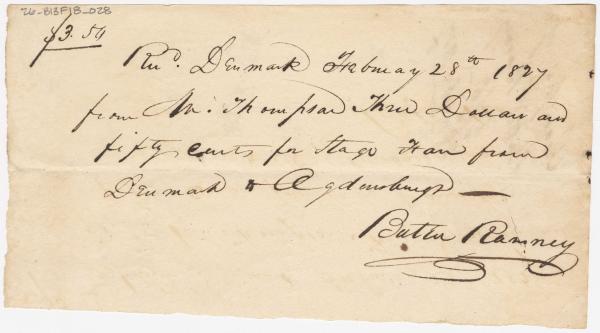 26-B13F1B-028
$3.50
Recd. Denmark February 28th 1827
from Mr. Thompson Three Dollars and
fifty cents for Stage Fare from
Denmark to Ogdensburgh —
Ramney